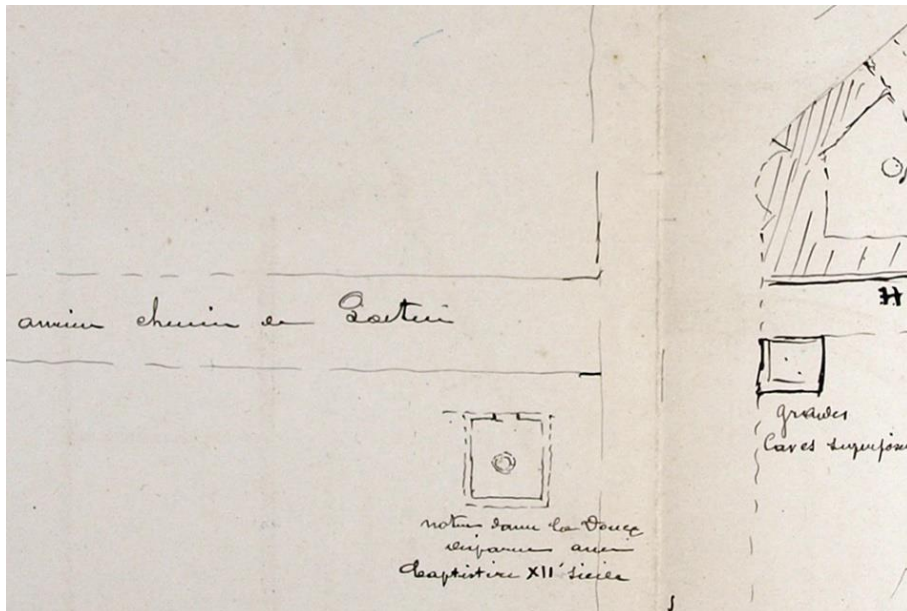 ancien chemin de
H
grandes
Caves superpose
notre dame la Douce
disparue ancien
Baptistère XII siècle